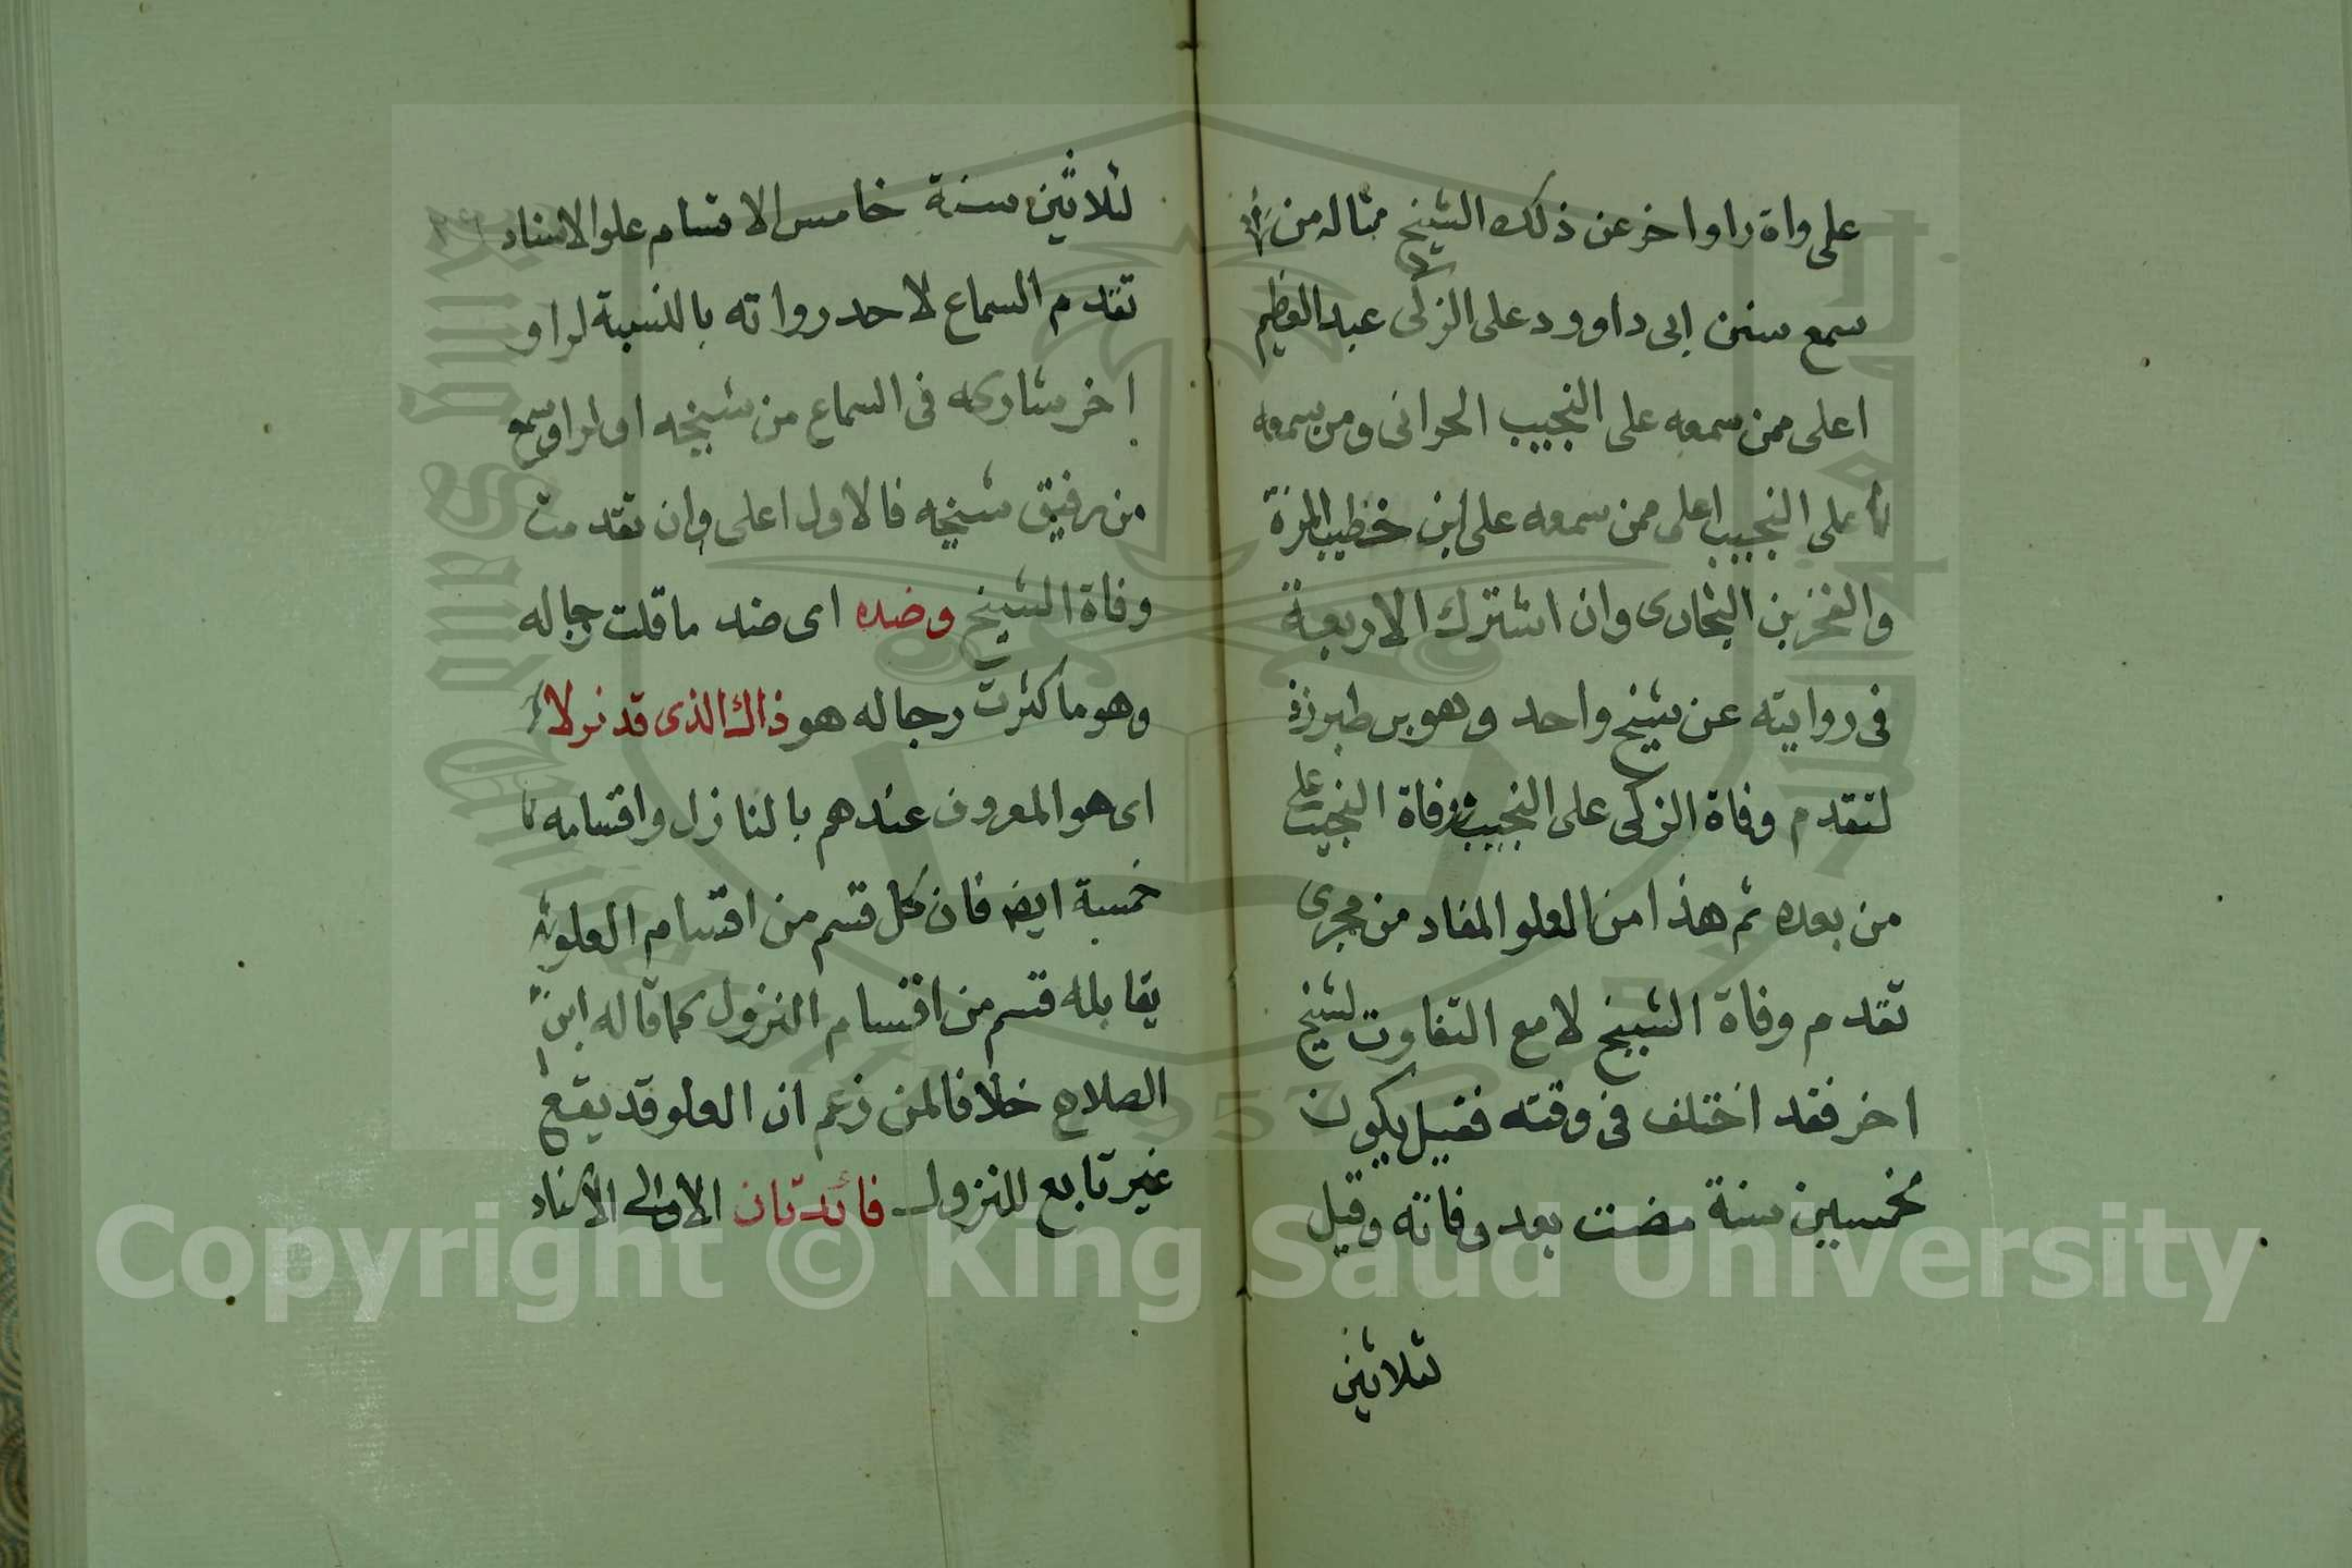 على واة راو اخر عن ذلك الشيخ مثاله من
سمع سنن ابى داوود على الزكى عبد العظيم
اعلى ممن سمعه على النجيب الحرانى ومن سمعه
على النجيب اعلى ممن سمعه على ابن خطيب المزة
والفخر بن البخارى وان اشترك الاربعة
فى روايته عن شيخ واحد وهو بن طبرزذ
لتقدم وفاة الزكى على النجيب وفاة النجيب على
من بعده ثم هذا من العلو المفاد من مجرى
تقدم وفاة الشيخ لا مع التفاوت لشيخ
اخر فقد اختلف فى وقته فقيل يكون
لخمسين سنة مضت بعد وفاته وقيل
ثلاثين
لثلاثين سنة خامس الاقسام علو الاسناد
تقدم السماع لاحد رواته بالنسبة لراو
اخر شاركه فى السماع من شيخه او لراو سمع
من رفيق شيخه فالاول اعلى وان تقدمت
وفاة الشيخ وضده اى ضد ما قلت رجاله
وهو ما كثرت رجاله هو ذاك الذى قد نزلا
اى هو المعروف عندهم بالنازل واقسامه
خمسة ايضا فان كل قسم من اقسام العلو
يقابله قسم من اقسام النزول كما قاله ابن
الصلاح خلافا لمن زعم ان العلو قد يقع
غير تابع للنزول فائدتان الاولى الاسناد
Copyright © King Saud University
1957